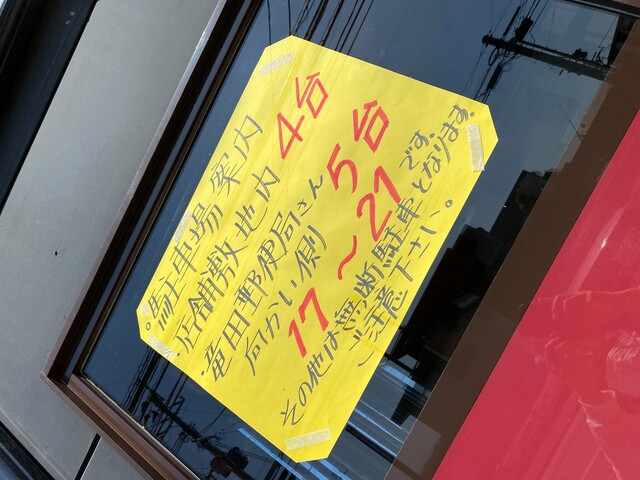 。駐車場案内
店舗敷地内 4台
・竜田郵便局さん 5台
向かい側
17～21です。
その他は無断駐車となります。
ご注意下さい。